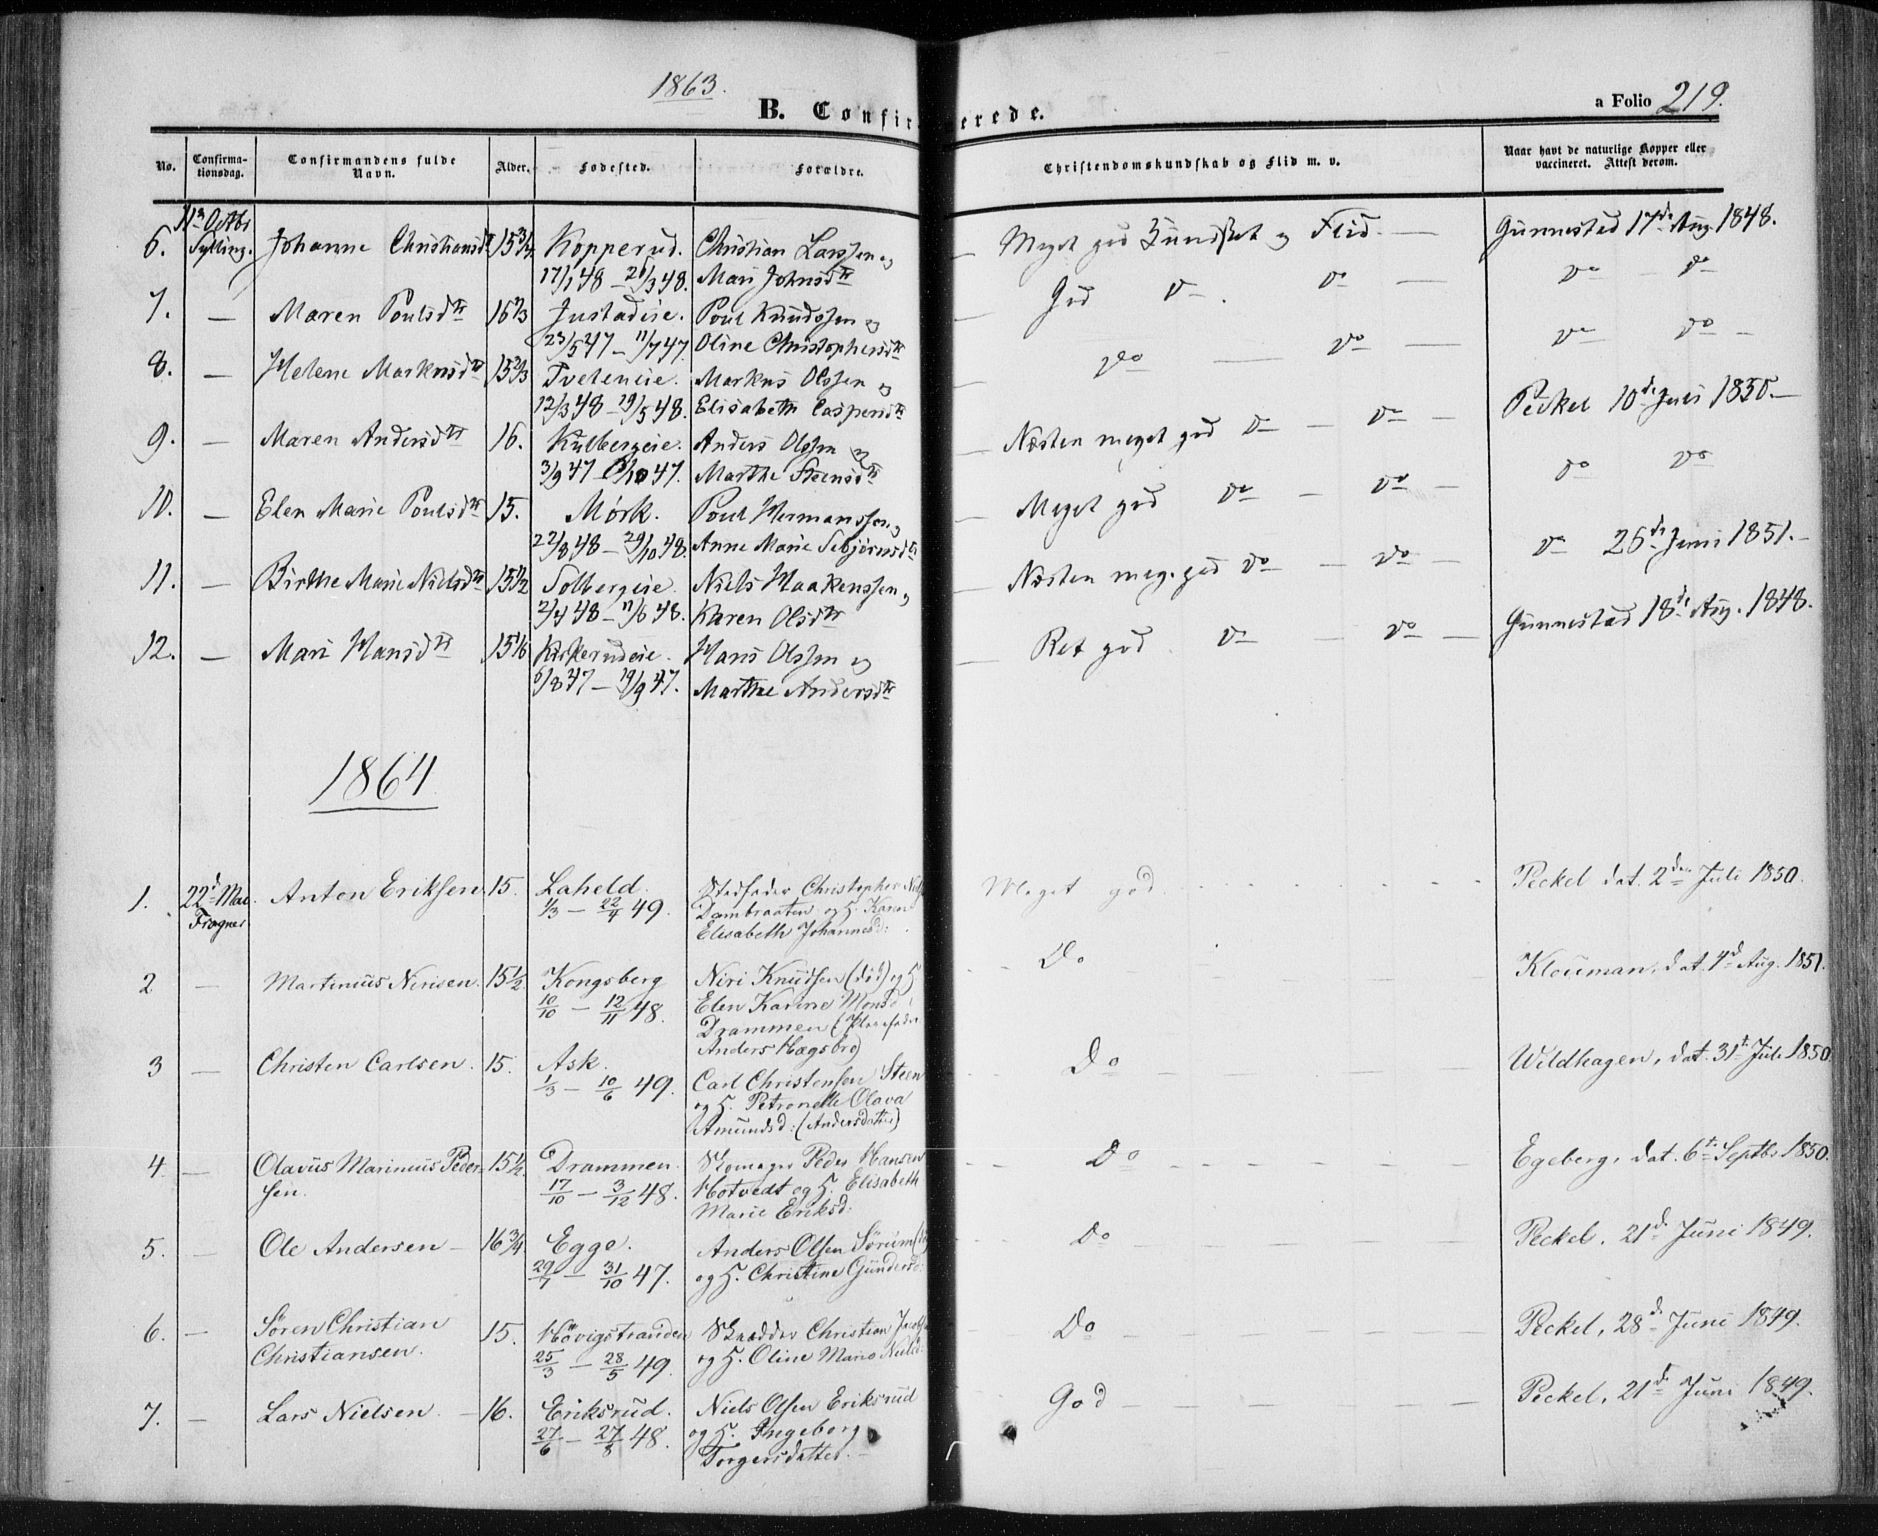 1863.
B. Confirmerede.
a Folio 219.
No. Confirmationsdag. Confirmandens fulde Navn. Alder. Fødested. Forældre. Christendomskundskab og Flid m. v. Naar havt de naturlige Kopper eller vaccineret. Attest derom.
6. 11te Octbr Sylling. Johanne Christiansdtr 15 3/4 Kopperud. Christian Larssen og Meget god Kundskab og Flid. — Gunnestad 17de Aug. 1848.
17/1 48 — 26/3 48. Mari Johnsdtr
7. — Maren Poulsdtr 16 1/3 Justadeie. Poul Knudssen og God do. do — do — do
23/5 47 — 11/7 47. Oline Christophersdtr
8. — Helene Markusdtr 15 2/3 Tveteneie. Markus Olssen og do — do — do do —
12/3 48 — 19/5 48. Elisabeth Caspersdtr
9. — Maren Andersdtr 16. Kulbergeie. Anders Olssen og Næsten meget god do — do — Peckel 10de Juli 1850. —
3/9 47 47. Marthe Steensdtr
10. — Elen Marie Poulsdtr 15. Mörk. Poul Hermanssen og Meget god do — do — do do
22/8 48 — 29/10 48. Anne Marie Sebjörnsdtr
11. — Birthe Marie Nielsdtr 15 1/2 Solbergeie. Niels Haakenssen og Næsten meg. god do — do — do 26de Juni 1851. —
2/4 48 — 11/6 48. Karen Olsdtr
12. — Mari Hansdtr 15 1/6 Kirkerudeie. Hans Olssen og Ret god do — do — Gunnestad 18de Aug. 1848.
6/8 47 — 19/9 47. Marthe Andersdtr
1864
1. 22d Mai. Anton Eriksen 15. Laheld. Stedfader Christopher Meget god. Peckel dat. 2den Juli 1850.
Frogner 1/3 — 22/4 49. Dambraaten og H. Karen
Elisabeth Johannesd:
2 — Martinius Nirisen. 15 1/2 Kongsberg Niri Knudsen (död) og H Do Klouman, dat. 4d Aug. 1851.
10/10 — 12/11 48. Elen Karine Monsd
Drammen (Pleiefader
Anders Hægsbro)
3 — Christen Carlsen. 15. Ask. Carl Christensen Steen Do Wildhagen, dat. 31t Juli 1850
1/3 — 10/6 49. og H. Petronelle Olava
Amundsd: (Andersdatter)
4. — Olavus Marinius Peder- 15 1/2 Drammen. Skomager Peder Hansen Do Egeberg, dat. 6t Septbr 1850.
sen. 17/10 — 3/12 48. Hotvedt og H. Elisabeth
Marie Eriksd.
5. — Ole Andersen — 16 3/4 Egge. Anders Olsen Sörum Do Peckel, 21d Juni 1849.
29/7 — 31/10 47. og H. Christine Gunders
6. — Sören Christian 15. Hövigstranden Skrædder Christian Do Peckel, 28d Juni 1849.
Christiansen. 25/3 — 28/5 49. og H. Oline Marie
7. — Lars Nielsen. — 16. Eriksrud. Niels Olsen Eriksrud God Peckel, 21d Juni 1849.
27/6 — 27/8 48. og H. Ingeborg
Torgersdatter. —